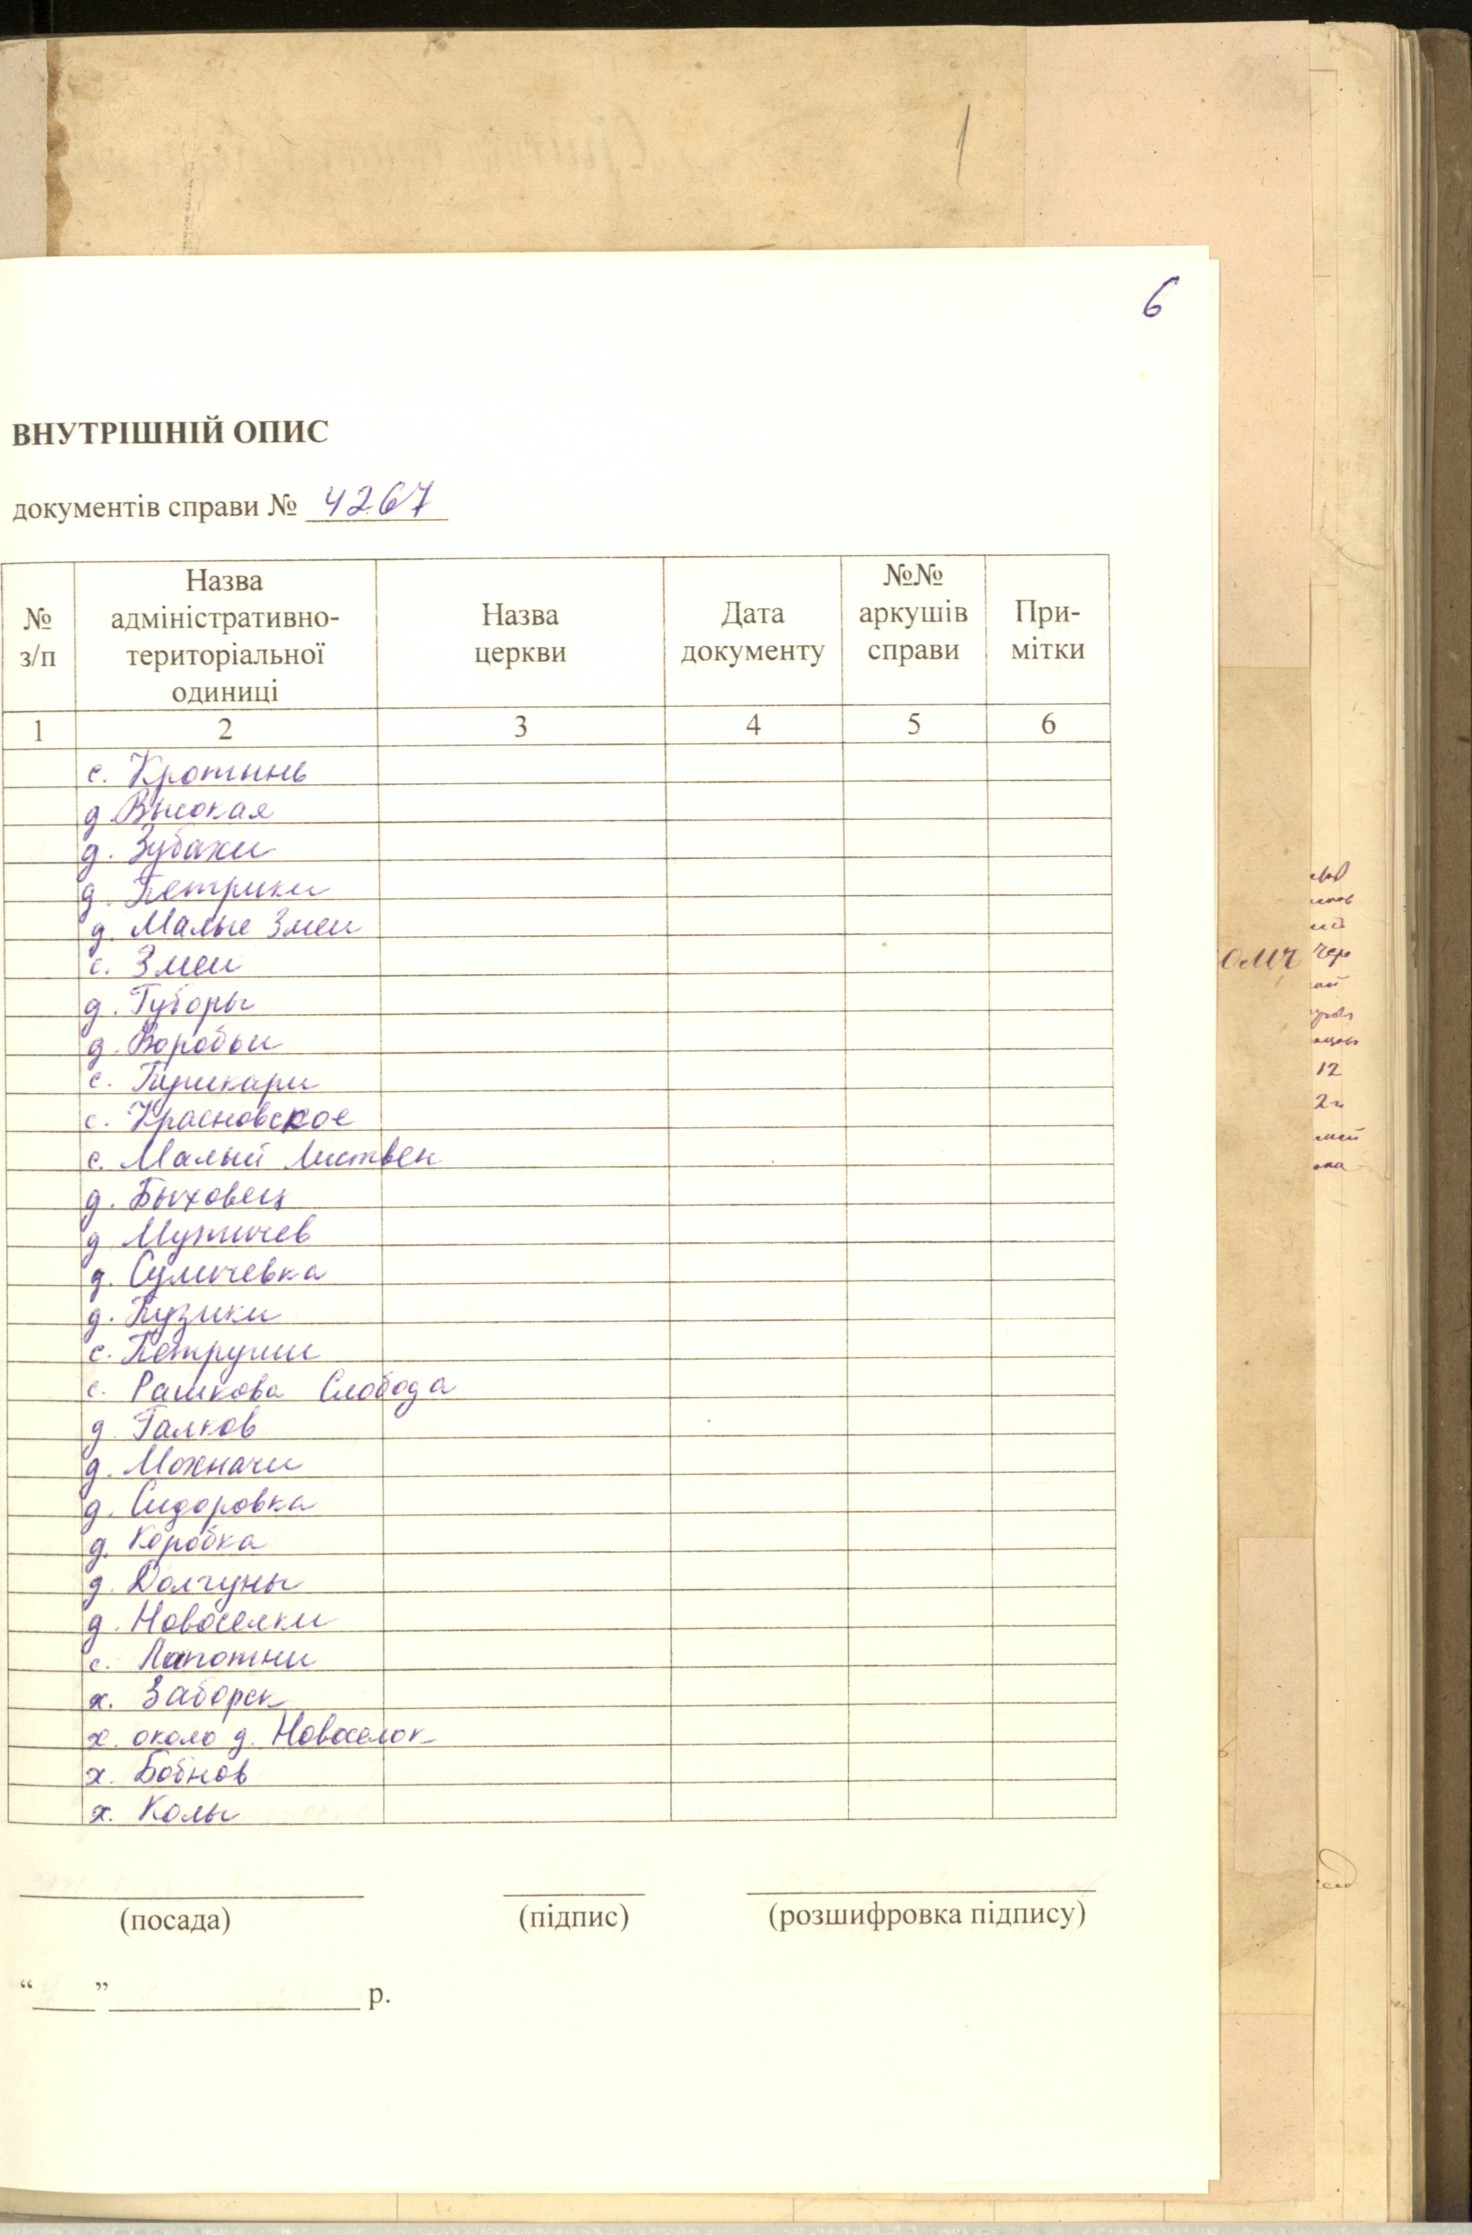 1
6
ВНУТРІШНІЙ ОПИС
документів справи № 4267
№ з/п
Назва адміністративно-територіальної одиниці
Назва церкви
Дата документу
№№ аркушів справи
При-мітки
1 2 3 4 5 6
с. Кротынь
д. Высокая
д. Зубахи
д. Петрики
д. Малые Змеи
с. Змеи
д. Губоры
д. Воробьи
с. Пушкари
с. Красновское
с. Малый Листвен
д. Быховец
д. Мутичев
д. Суличевка
д. Пузики
с. Петруши
с. Рашкова Слобода
д. Галков
д. Мохначи
д. Сидоровка
д. Коробка
д. Долгуны
д. Новоселки
с. Лапотни
х. Заборск
х. около д. Новоселок
х. Бобнов
х. Колы
(посада) (підпис) (розшифровка підпису)
“____”__________________ р.